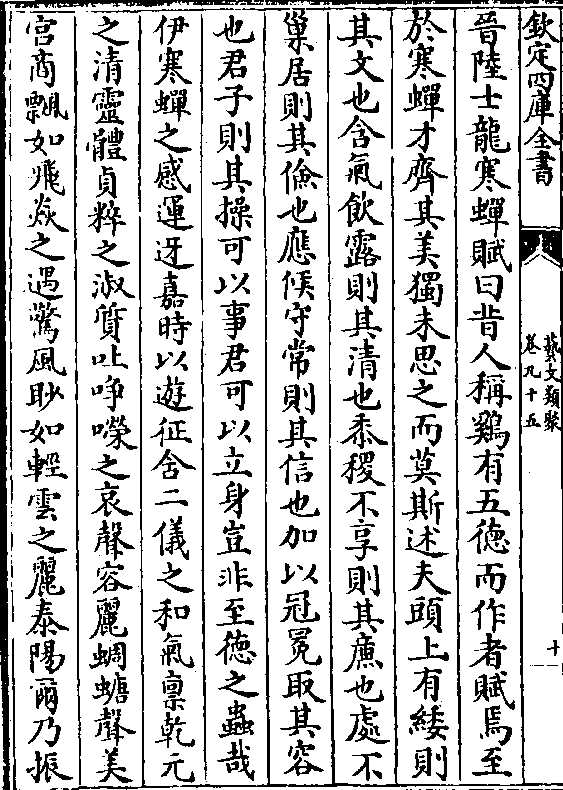 欽定四庫全書
藝文類聚
卷九十五
十一
晉陸士龍寒蟬賦曰昔人稱鷄有五德而作者賦焉至
於寒蟬才齊其美獨未思之而莫斯述夫頭上有緌則
其文也含氣飲露則其清也黍稷不享則其廉也處不
巢居則其儉也應候守常則其信也加以冠冕取其容
也君子則其操可以事君可以立身豈非至德之蟲哉
伊寒蟬之感運迓嘉時以遊征含二儀之和氣稟乾元
之清靈體貞粹之淑質吐哰嶸之哀聲容麗蜩螗聲美
宫商飄如飛焱之遇驚風眇如輕雲之麗泰陽爾乃振